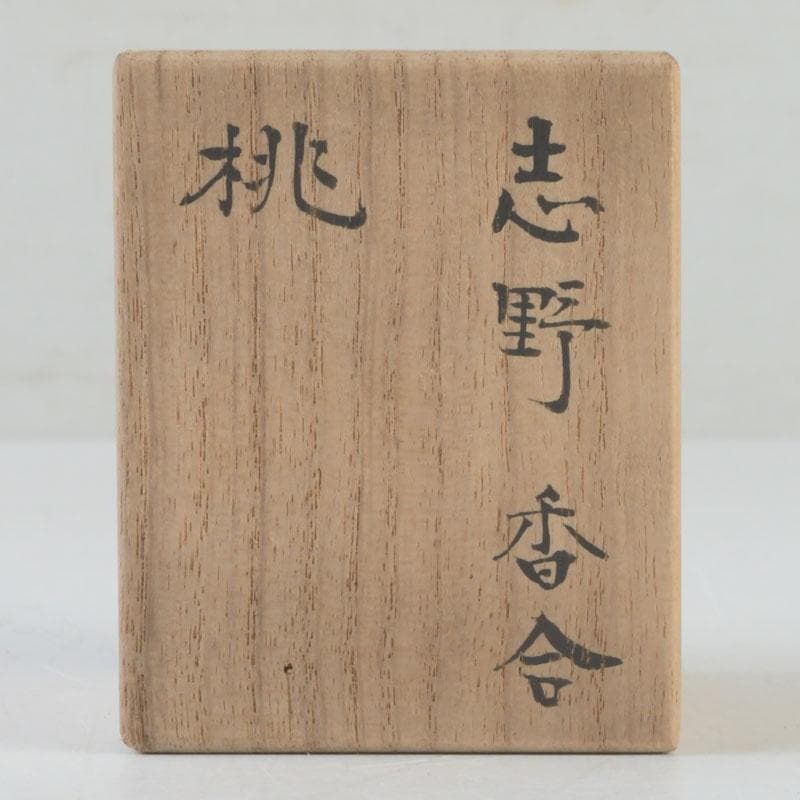 志野香合
桃